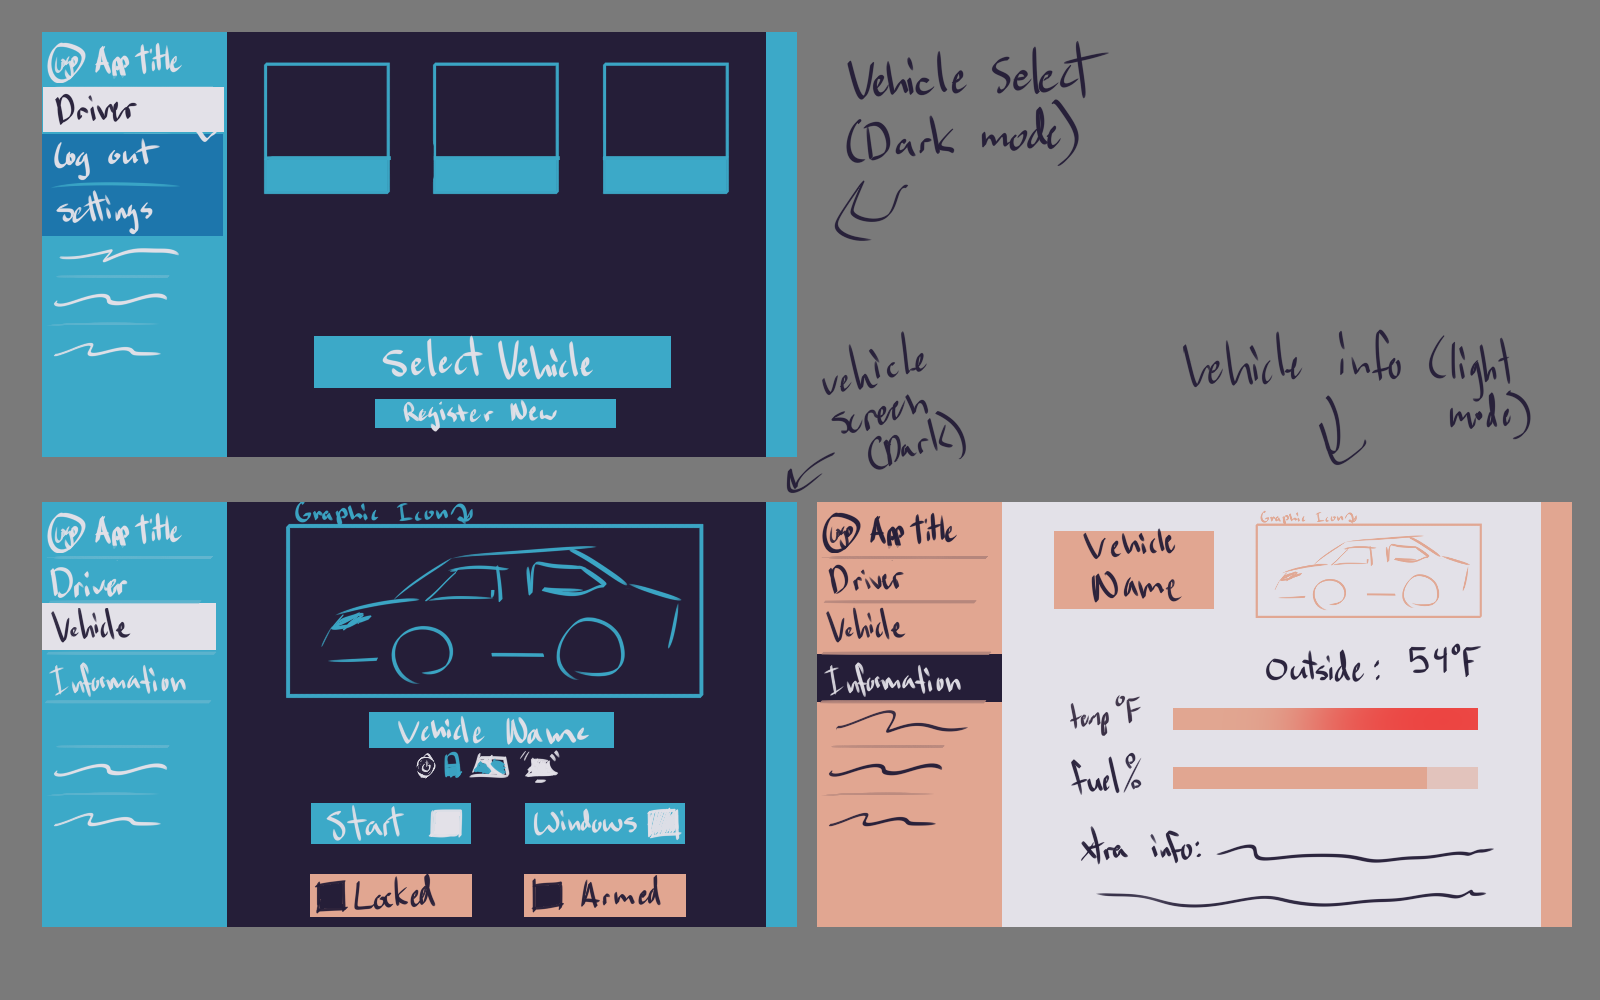 App Title
Driver
Log out
Settings
Select Vehicle
Register New
Vehicle Select
(Dark mode)
vehicle
screen
(Dark)
Vehicle info (light
mode)
App Title
Driver
Vehicle
Information
Graphic Icon
Vehicle Name
Start
Windows
Locked
Armed
App Title
Driver
Vehicle
Information
Vehicle
Name
Graphic Icon
Outside: 54°F
temp °F
fuel %
xtra info: